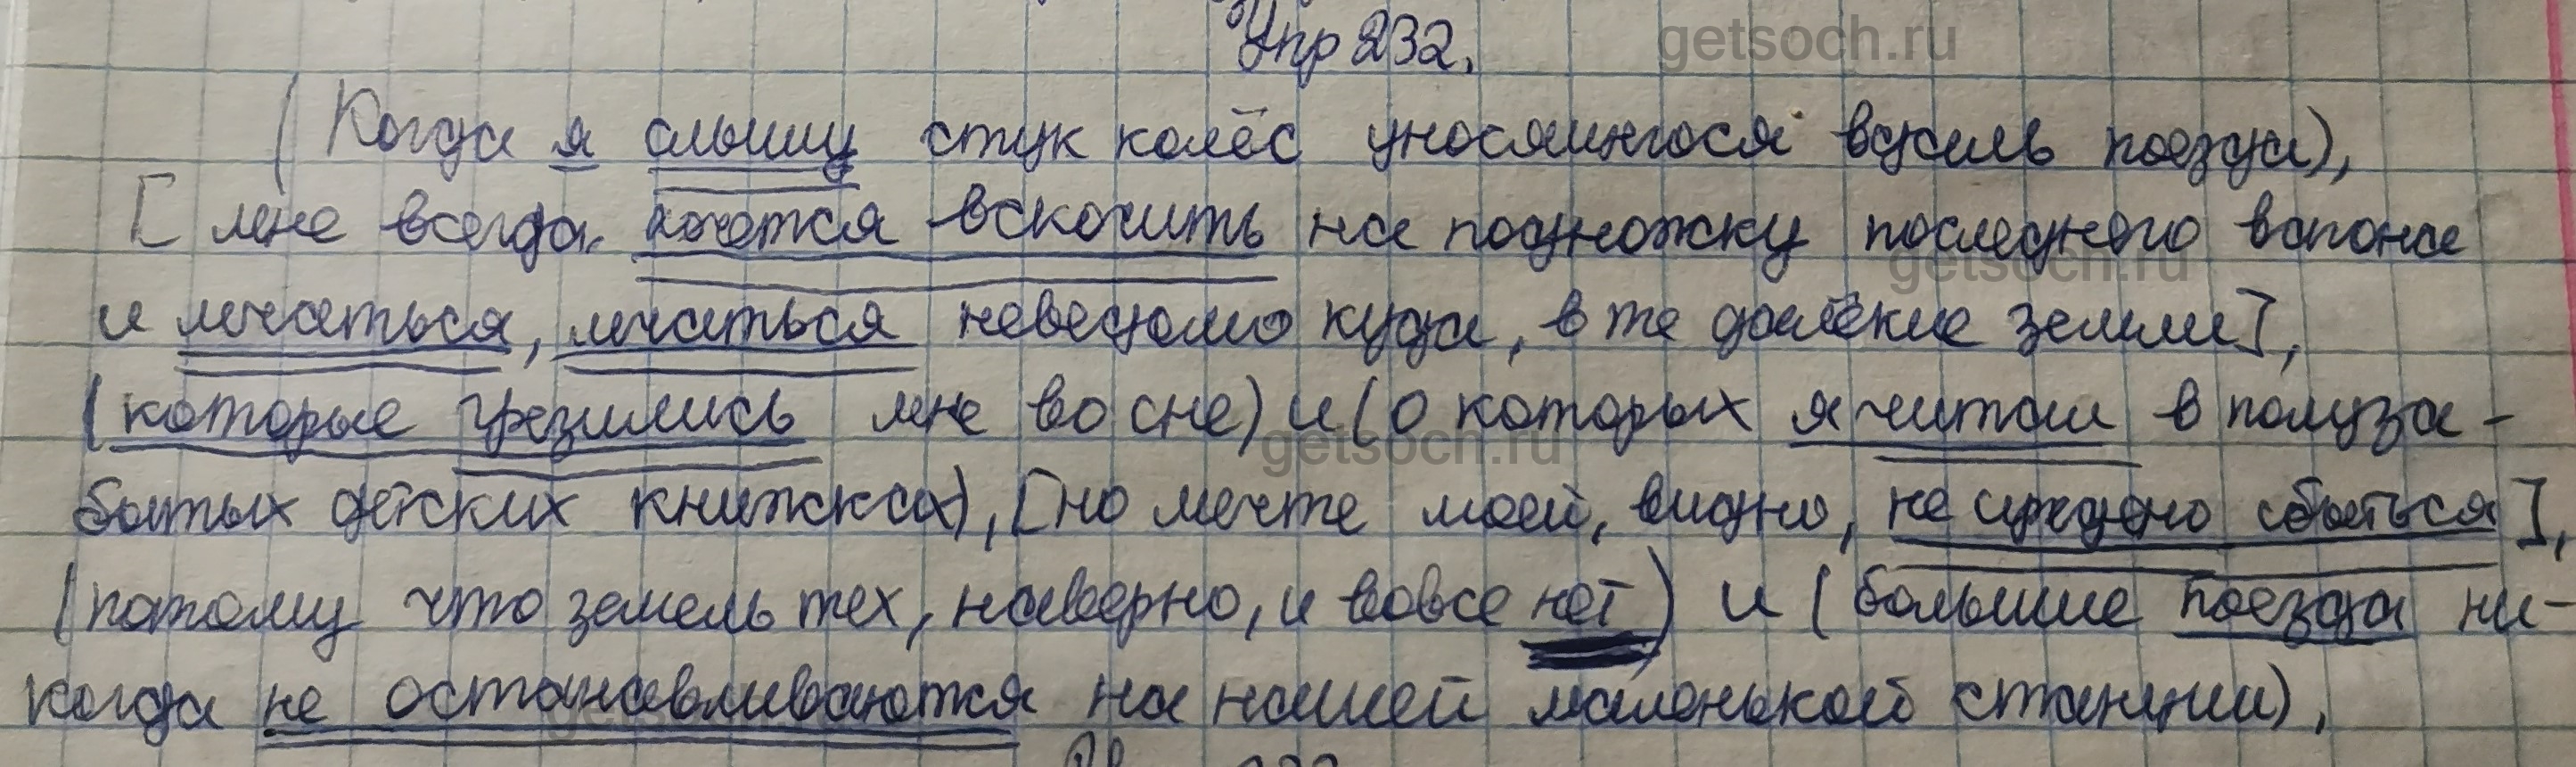 Упр 232.
getsoch.ru
(Когда я слышу стук колёс уносящегося вдаль поезда),
[мне всегда хочется вскочить на подножку последнего вагона
getsoch.ru
и мчаться, мчаться неведомо куда, в те далёкие земли],
(которые грезились мне во сне) и (о которых я читал в полуза-
getsoch.ru
бытых детских книжках), [но мечте моей, видно, не суждено сбыться],
(потому что земель тех, наверно, и вовсе нет) и (большие поезда ни-
когда не останавливаются на нашей маленькой станции).
getsoch.ru